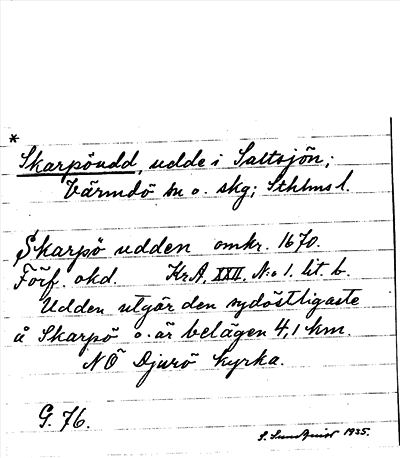 *
Skarpöudd, udde i Saltsjön;
Värmdö sn o. skg; Sthlms l.
Skarpö udden omkr. 1670.
Förf. okd. KrA, XXII. N:o 1. lit. b.
Udden utgör den sydöstligaste
å Skarpö o. är belägen 4,1 km.
NÖ Djurö kyrka.
G. 76.
S. Sundqvist 1935.